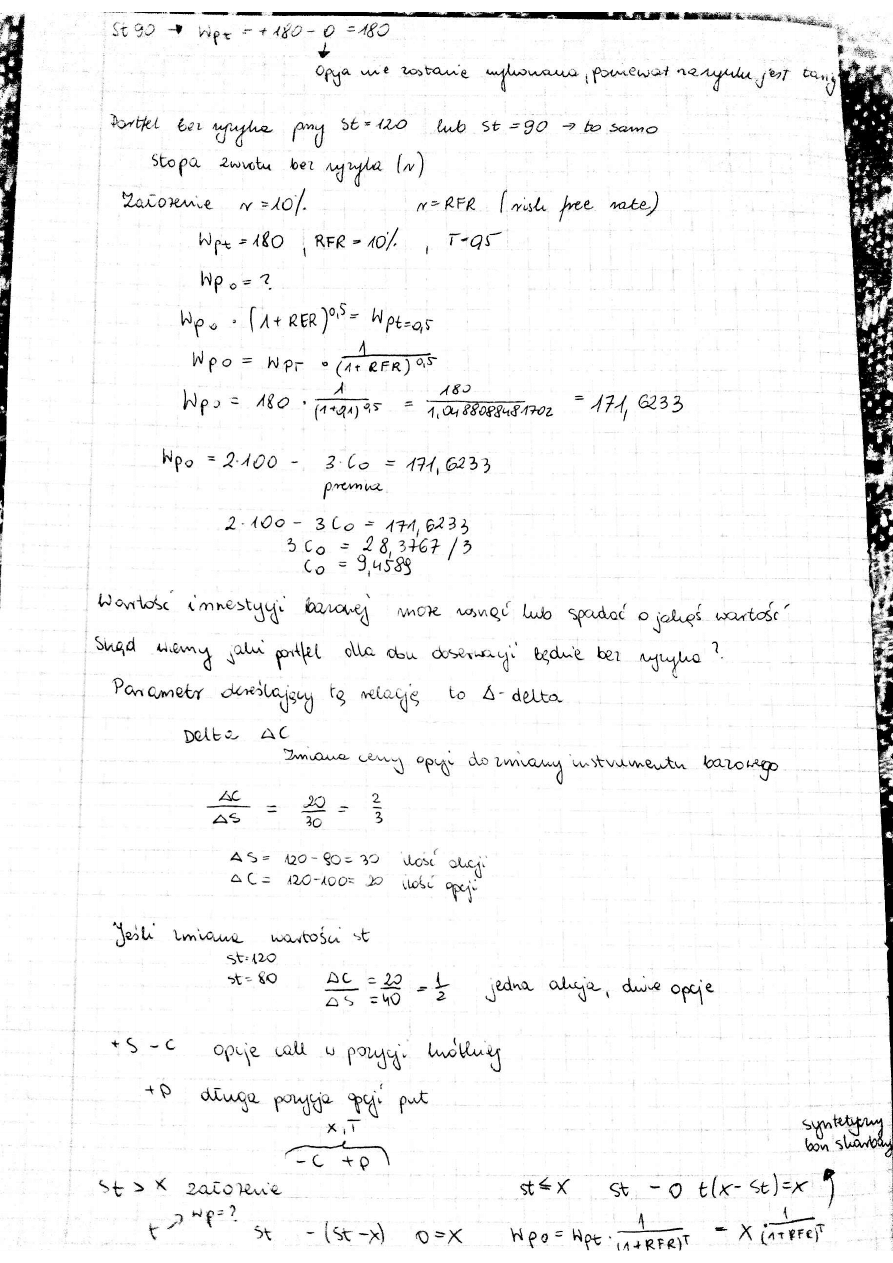 St 90 → Wpt = +180 - 0 = 180
↓
Opcja nie zostanie wykonana, ponieważ na rynku jest taniej
Portfel bez ryzyka przy St=120 lub St=90 → to samo
Stopa zwrotu bez ryzyka (r)
Założenie r=10% r=RFR (risk free rate)
Wpt=180, RFR=10%, T=0,5
Wpo=?
Wpo · (1+RFR)^0,5 = Wpt=0,5
Wpo = WpT · 1/(1+RFR)^0,5
Wpo = 180 · 1/(1+0,1)^0,5 = 180/1,0488088481702 = 171,6233
Wpo = 2·100 - 3·Co = 171,6233
premia
2·100 - 3Co = 171,6233
3Co = 28,3767 /3
Co = 9,4589
Wartość inwestycji bazowej może rosnąć lub spadać o jakąś wartość
Skąd wiemy jaki portfel dla obu obserwacji będzie bez ryzyka?
Parametr określający tą relację to Δ-delta
Delta ΔC
Zmiana ceny opcji do zmiany instrumentu bazowego
ΔC/ΔS = 20/30 = 2/3
ΔS = 120-90=30 ilość akcji
ΔC = 120-100=20 ilość opcji
Jeśli zmiana wartości st
st=120
st=80 ΔC/ΔS =20/=40 = 1/2 jedna akcja, dwie opcje
+S -C opcje call w pozycji krótkiej
+P długa pozycja opcji put
X,T
-C +P
syntetyczny
bon skarbowy
St > X założenie st ≤ X st - 0 t(x-st)=x
t → wp=? st -(st-x) 0=x Wpo=Wpt · 1/(1+RFR)^T = X · 1/(1+RFR)^T